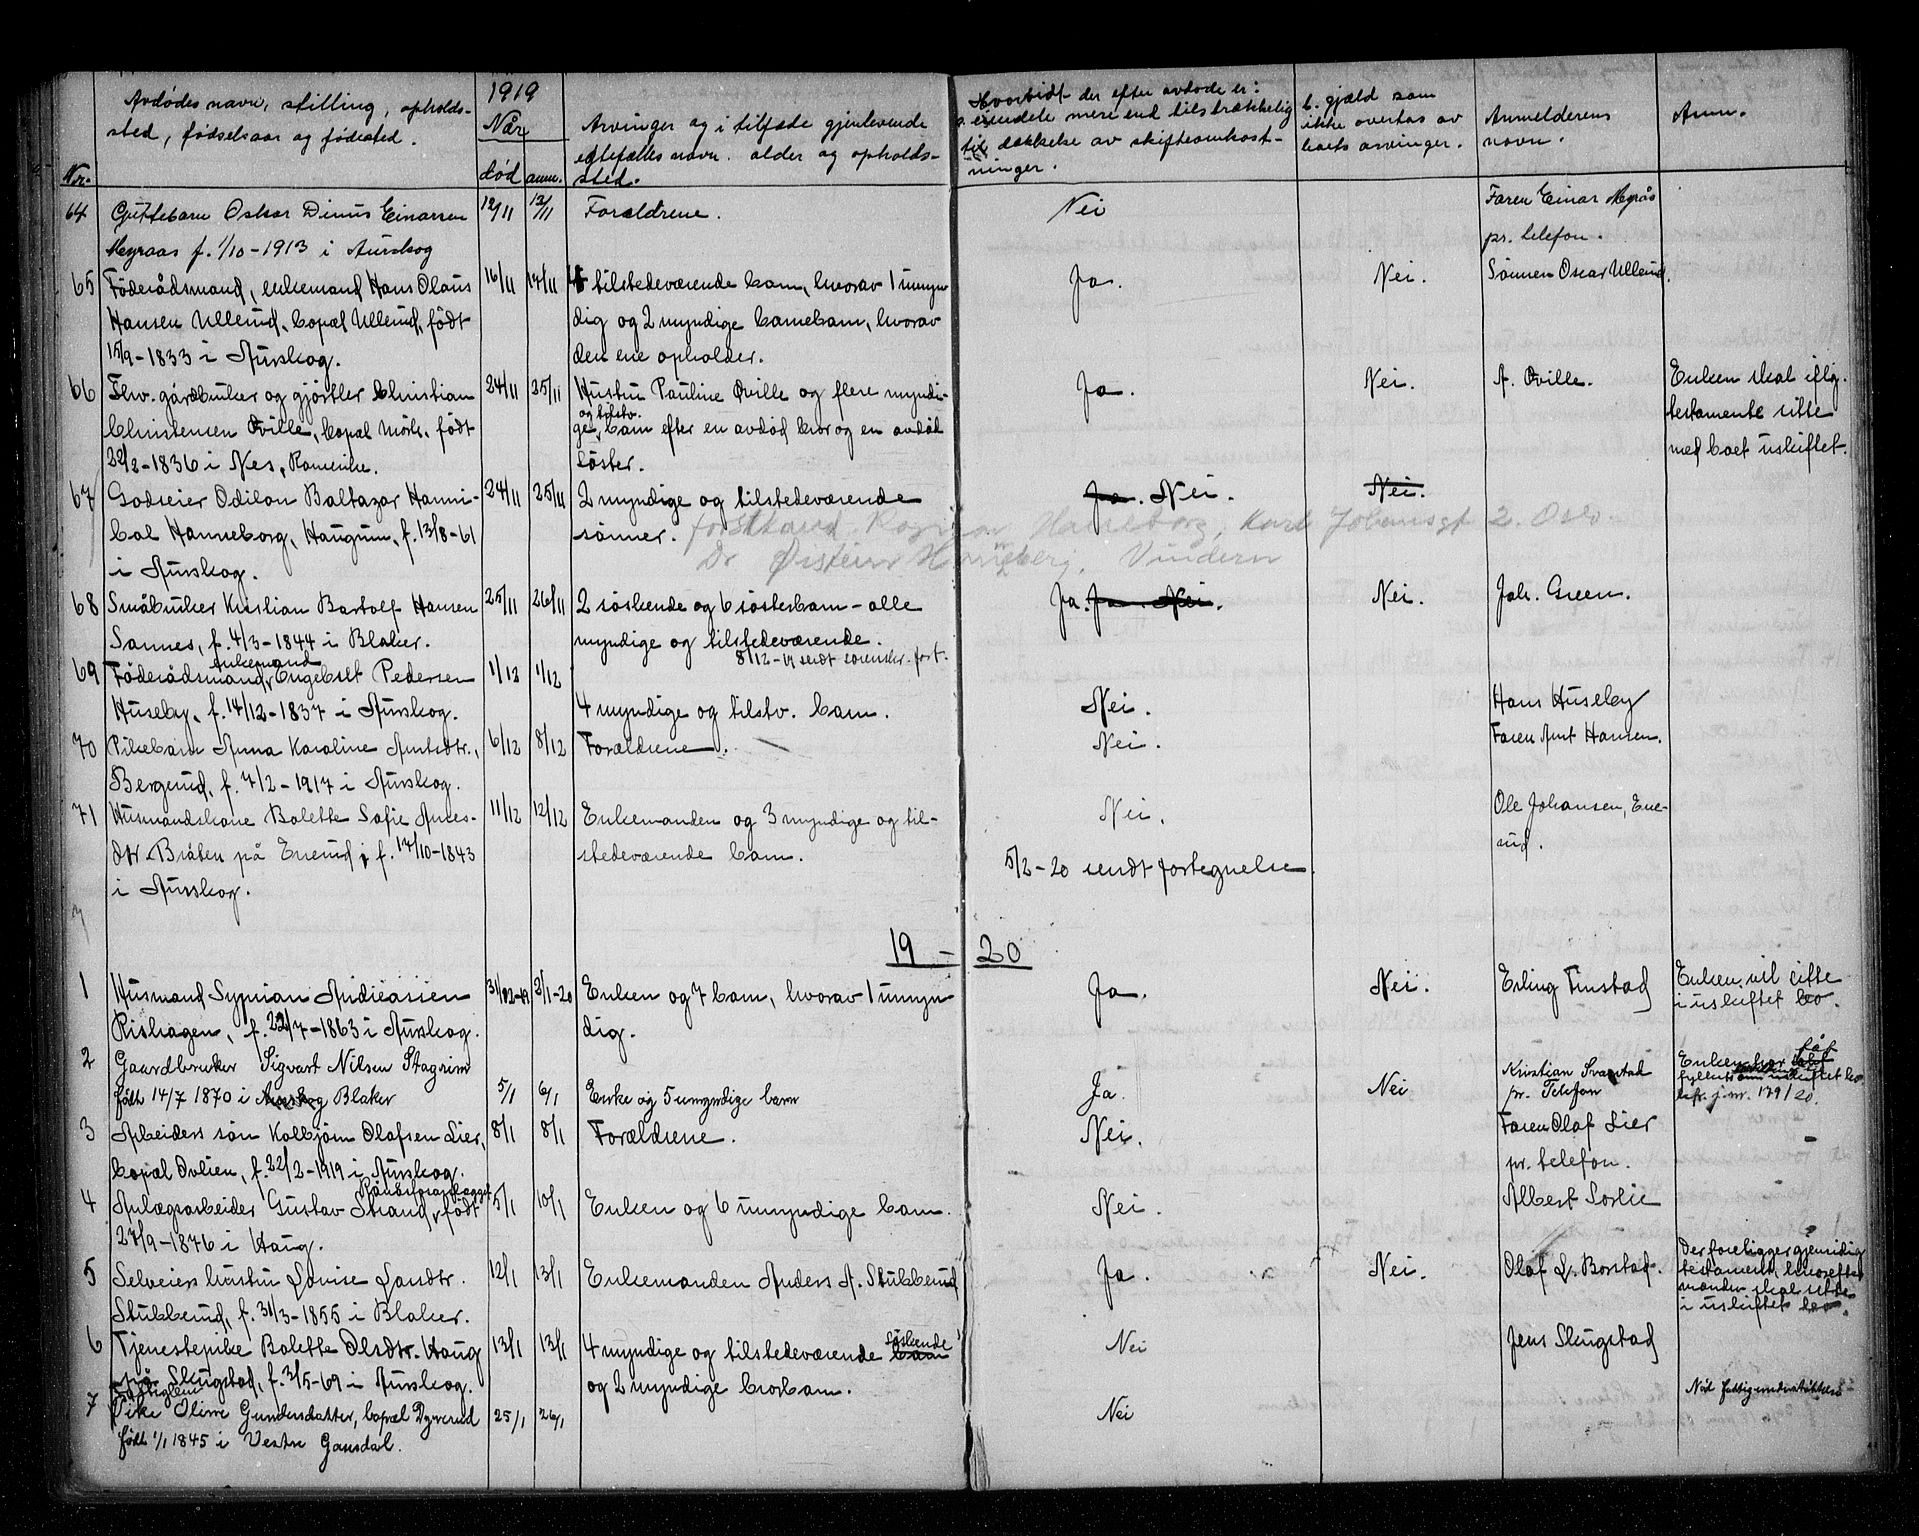 1919
Avdødes navn, stilling, opholds-
sted, fødselsaar og fødested.
Når
Arvinger og i tilfælde gjenlevende
egtefælles navn, alder og opholds-
sted.
Hvorvidt der efter avdøde er:
a. eiendele mere end tilstrækkelig
til dækkelse av skifteomkost-
ninger.
b. gjæld som
ikke overtas av
boets arvinger.
Anmelderens
navn.
Anm.
Nr.
død anm.
64 Guttebarn Oskar Dinus Einarsen 12/11 13/11 Forældrene. Nei Faren Einar Myrås
Myraas f. 1/10-1913 i Aurskog pr. telefon.
65 Føderådsmand, enkemand Hans Olaus 16/11 17/11 4 tilstedeværende barn, hvorav 1 umyn- Ja. Nei. Sønnen Oscar Ullerud.
Hansen Ullerud, bopæl Ullerud, født dig og 2 myndige barnebarn, hvorav
15/9-1833 i Aurskog. den ene opholder.
66 Fhv. gårdbruker og gjørtler Christian 24/11 25/11 Hustru Pauline Øville og flere myndi- Ja. Nei. A. Øville. Enken skal iflg.
og tilstv.
Christensen Øville, bopæl Mörk, født ge barn efter en avdød bror og en avdød testamente sitte
22/2-1836 i Nes, Romerike. søster. med boet uskiftet.
67 Godseier Odilon Baltazar Hanni- 24/11 25/11 2 myndige og tilstedeværende Ja. Nei. Nei.
bal Hanneborg, Haugrim, f. 13/8-61 sønner. forstkand. Ragnar Hanneborg, Karl Johansgt 2. Oslo.
i Aurskog. Dr Øistein Hanneborg, Vindern
68 Småbruker Kristian Bartolf Hansen 25/11 26/11 2 søskende og 6 søsterbarn - alle Ja. Ja. Nei. Nei. Joh. Green.
Sannes, f. 4/3-1844 i Blaker. myndige og tilstedeværende.
8/12-19 sendt sorenskr. fort.
enkemand
69 Føderådsmand Engebret Pedersen 1/12 1/12
Huseby, f. 14/12-1837 i Aurskog. 4 myndige og tilstv. barn. Nei. Hans Huseby
70 Pikebarn Anna Karoline Arntsdtr., 6/12 8/12 Forældrene. Nei. Faren Arnt Hansen.
Bergerud, f. 7/2-1917 i Aurskog.
71 Husmandskone Bolette Sofie Andes- 11/12 12/12 Enkemanden og 3 myndige og til- Nei. Ole Johansen, Ene-
dtr Bråten på Enerud, f. 17/10-1843 stedeværende barn. rud.
i Aurskog. 5/2-20 sendt fortegnelse.
19 - 20
1 Husmand Syprian Andreassen 31/12-19 2/1-20 Enken og 7 barn, hvorav 1 umyn- Ja. Nei. Erling Finstad Enken vil sitte
Rishagen, f. 22/7-1863 i Aurskog. dig. i uskiftet bo.
2 Gaardbruker Sigvart Nilsen Stagrim Kristian Svarstad Enken har fåt
født 14/7 1870 i Aurskog Blaker 5/1 6/1 Enke og 5 umyndige barn Ja. Nei pr. Telefon uskiftet bo
jr. nr. 179/20.
3 Arbeiders søn Kolbjørn Olafsen Lier, 8/1 8/1 Forældrene. Nei. Faren Olaf Lier
bopæl Ovlien, f. 22/2-1919 i Aurskog. pr. telefon.
4 Anlægsarbeider Gustav Strand, født 5/1 10/1 Enken og 6 umyndige barn. Nei. Albert Sorlie
27/9-1876 i Haug.
5 Selveiers hustru Lovise Larsdtr. 12/1 13/1 Enkemanden Anders A. Stubberud Ja. Nei. Olaf L. Borstad. Der foreligger gjensidig
testament, hvorefter
Stubberud, f. 31/3-1855 i Blaker. manden skal sitte
i uskiftet bo.
6 Tjenestepike Bolette Olsdtr. Haug 13/1 13/1 4 myndige og tilstedeværende barn søskende Nei Jens Slengstad
på Slengstad, f. 31/5-69 i Aurskog. og 2 myndige brorbarn.
Fattiglem
7 Pike Oline Gundersdatter, bopæl Dyrerud 25/1 26/1 Nei Nöd fattigunderstøttelse
født 1/1 1845 i Vestre Gausdal.